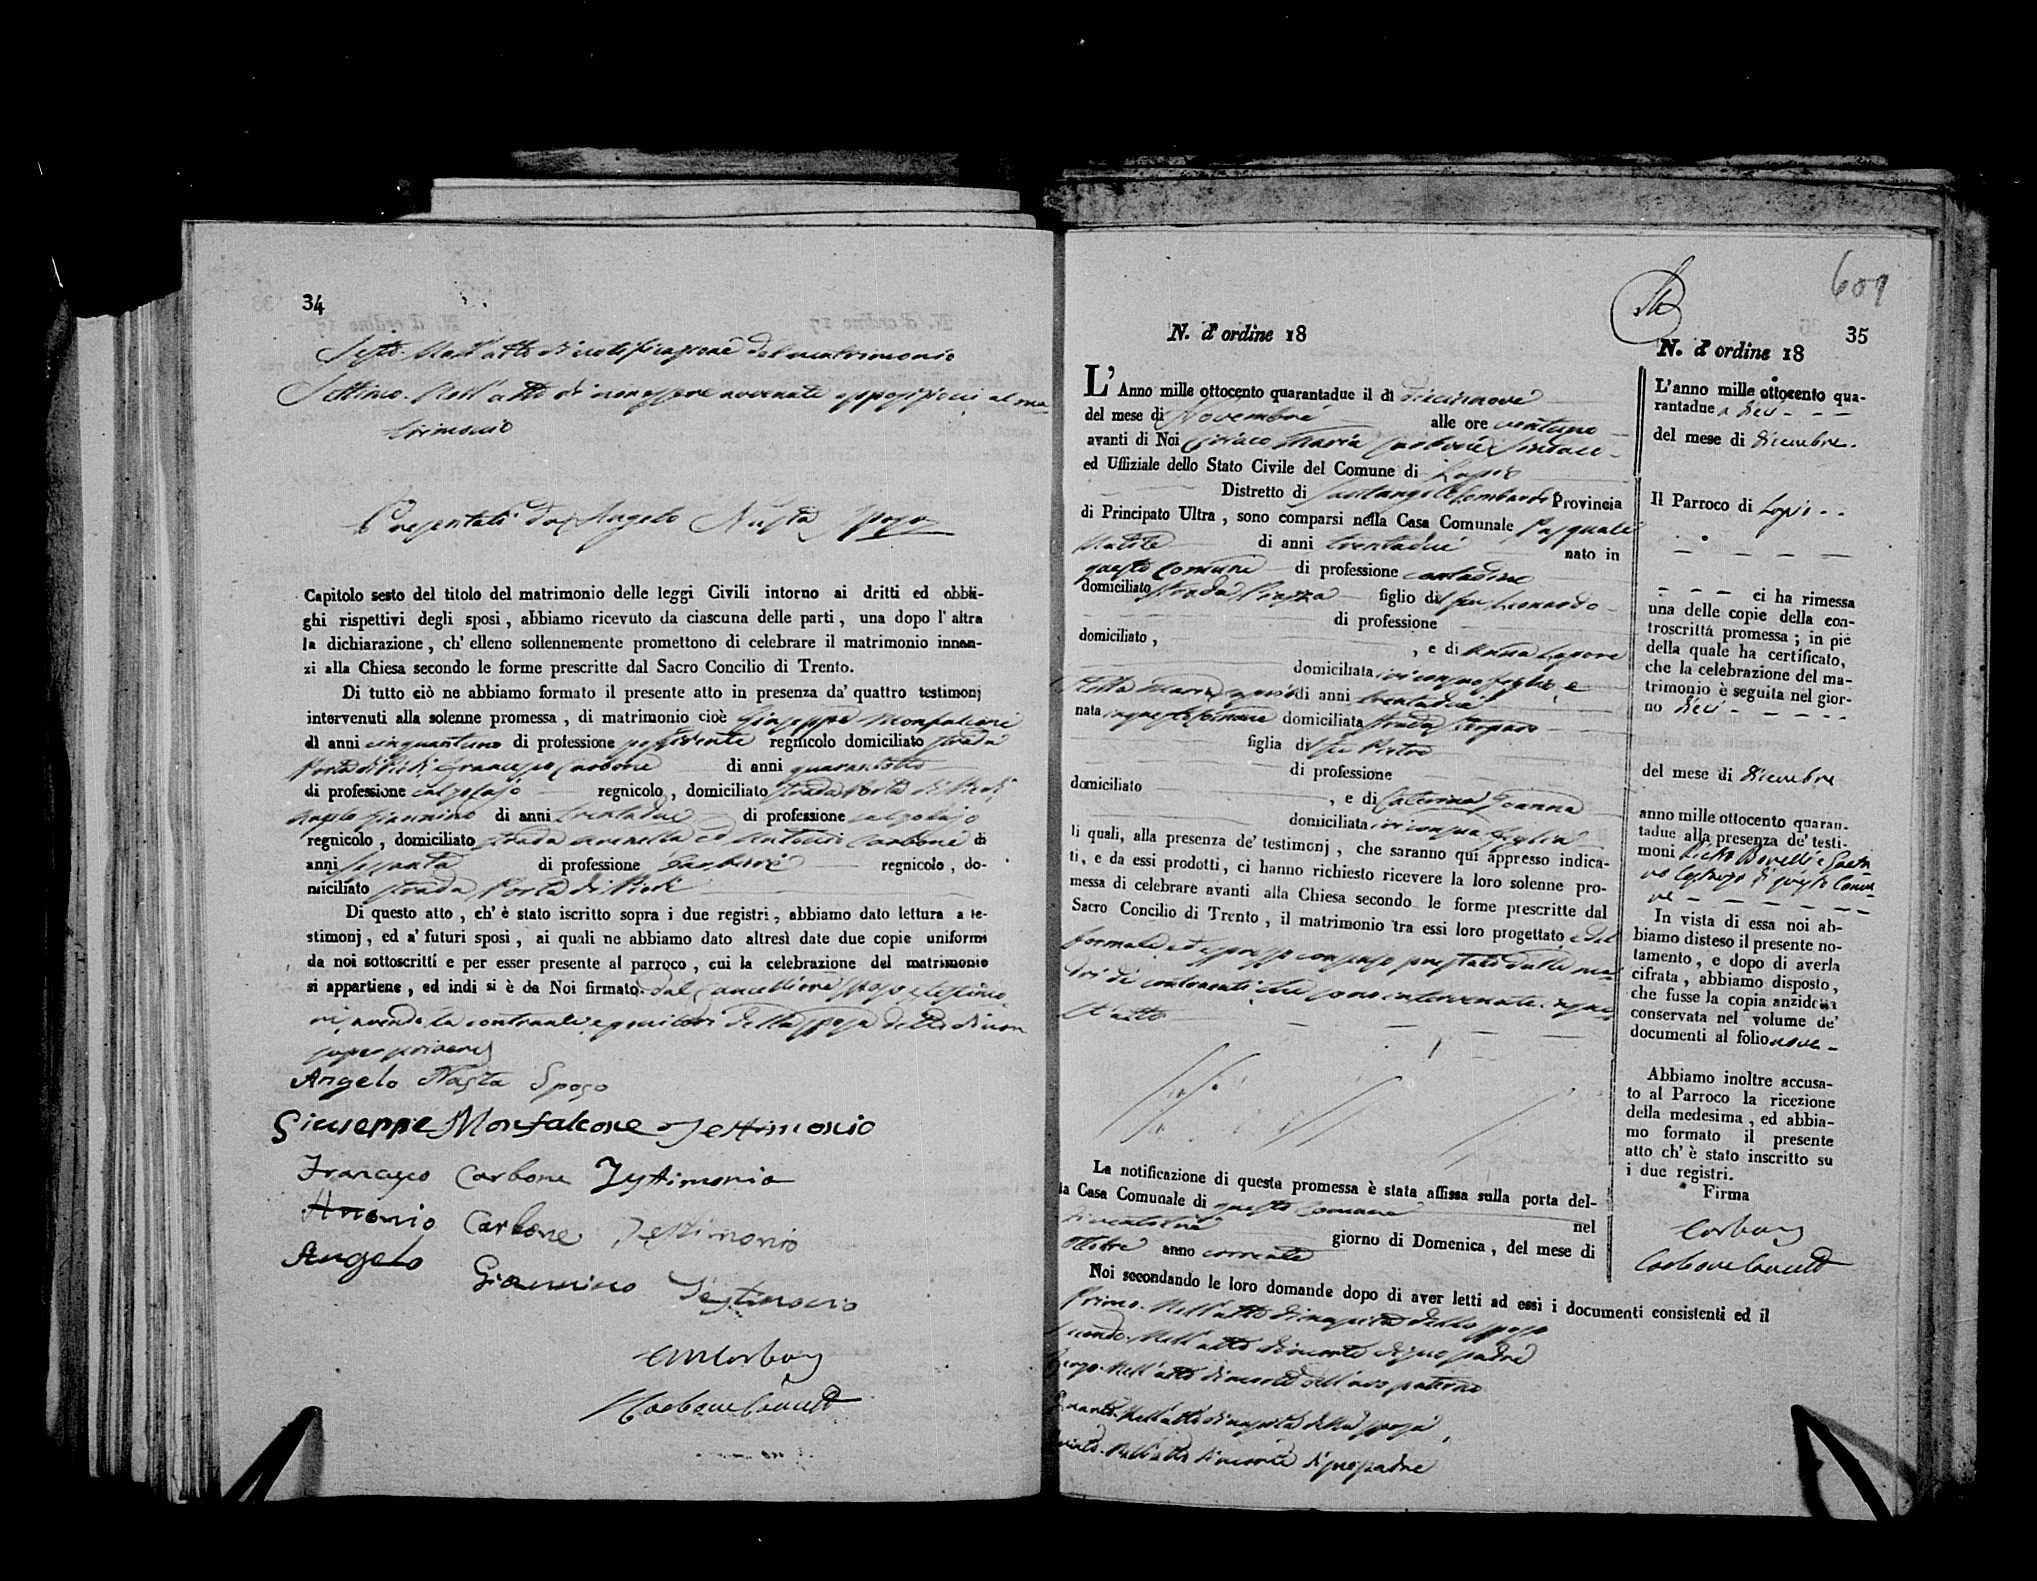 34
Sesto. Nell'atto di notificazione del matrimonio
Settimo. Nell'atto di non essere avvenute opposizioni al ma-
trimonio
Presentati da Angelo Nasta sposo
Capitolo sesto del titolo del matrimonio delle leggi Civili intorno ai dritti ed obbli-
ghi rispettivi degli sposi, abbiamo ricevuto da ciascuna delle parti, una dopo l'altra
la dichiarazione, ch'elleno sollennemente promettono di celebrare il matrimonio innan-
zi alla Chiesa secondo le forme prescritte dal Sacro Concilio di Trento.
Di tutto ciò ne abbiamo formato il presente atto in presenza da' quattro testimonj
intervenuti alla solenne promessa, di matrimonio cioè Giuseppe Monfalcone
di anni cinquantuno di professione possidente regnicolo domiciliato strada
Porta di Piedi Francesco Carbone di anni quarantotto
di professione calzolajo regnicolo, domiciliato strada Porta di Piedi
Angelo Giannino di anni trentadue di professione calzolajo
regnicolo, domiciliato strada ed Antonio Carbone di
anni sessanta di professione barbiere regnicolo, do-
miciliato strada Porta di Piedi
Di questo atto, ch'è stato iscritto sopra i due registri, abbiamo dato lettura a te-
stimonj, ed a' futuri sposi, ai quali ne abbiamo dato altresì date due copie uniformi
da noi sottoscritti e per esser presente al parroco, cui la celebrazione del matrimonio
si appartiene, ed indi si è da Noi firmato dal Cancelliere sposo e testimo-
ni, avendo la contraente e genitori della sposa detto di non
saper scrivere
Angelo Nasta Sposo
Giuseppe Monfalcone Testimonio
Francesco Carbone Testimonio
Antonio Carbone Testimonio
Angelo Giannino Testimonio
Carbone
Carbone Cancell
601
35
N. d'ordine 18
L'Anno mille ottocento quarantadue il dì diecinove
del mese di Novembre alle ore ventuno
avanti di Noi Ciriaco Maria Carbone Sindaco
ed Uffiziale dello Stato Civile del Comune di Lapio
Distretto di Santangelo Lombardi Provincia
di Principato Ultra, sono comparsi nella Casa Comunale Pasquale
di anni trentadue nato in
questo Comune di professione contadino
domiciliato strada Piazza figlio di fu Leonardo
di professione
domiciliato, , e di Anna Lepore
domiciliata ivi con suo figlio, e
Maria di anni trentadue
nata in questo Comune domiciliata strada
figlia di fu Pietro
di professione
domiciliato , e di Caterina Ioanna
domiciliata ivi con sua figlia
li quali, alla presenza de' testimonj, che saranno qui appresso indica-
ti, e da essi prodotti, ci hanno richiesto ricevere la loro solenne pro-
messa di celebrare avanti alla Chiesa secondo le forme prescritte dal
Sacro Concilio di Trento, il matrimonio tra essi loro progettato e del
formale ed espresso consenso prestato dalle ma-
dri di contraenti che sono intervenute
atto
La notificazione di questa promessa è stata affissa sulla porta del-
la Casa Comunale di questo Comune nel
giorno di Domenica, del mese di
Ottobre anno corrente
Noi secondando le loro domande dopo di aver letti ad essi i documenti consistenti ed il
Primo. Nell'atto di nascita dello sposo
Secondo. Nell'atto di morte di suo padre
Terzo. Nell'atto di morte dell'avo paterno
Quarto. Nell'atto di nascita della sposa
Quinto. Nell'atto di morte di suo padre
N. d'ordine 18
L'anno mille ottocento qua-
rantadue a dieci
del mese di dicembre
Il Parroco di Lapio
ci ha rimessa
una delle copie della con-
troscritta promessa; in piè
della quale ha certificato,
che la celebrazione del ma-
trimonio è seguita nel gior-
no dieci
del mese di dicembre
anno mille ottocento quaran-
tadue alla presenza de' testi-
moni Pietro Borelli e Gaeta
no di questo Comu-
ne
In vista di essa noi ab-
biamo disteso il presente no-
tamento, e dopo di averla
cifrata, abbiamo disposto,
che fusse la copia anzidetta
conservata nel volume de'
documenti al folio nove
Abbiamo inoltre accusa-
to al Parroco la ricezione
della medesima, ed abbia-
mo formato il presente
atto ch'è stato inscritto su
i due registri.
Firma
Carbone
Carbone Cancell